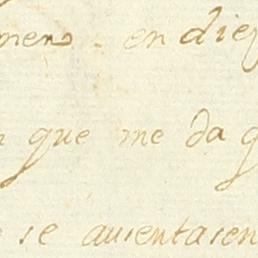 en diez
que me da
se ausentasen